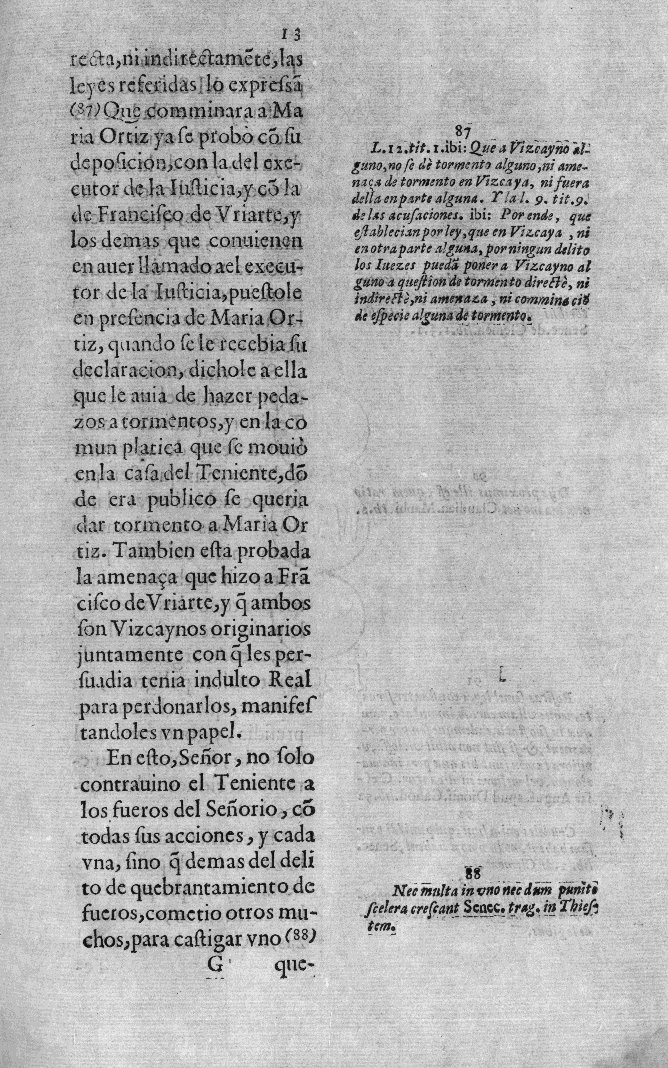 13
recta, ni indirectamẽte, las
leyes referidas lo expressã
(87) Que comminara a Ma
ria Ortiz ya se probò cõ su
deposicion, con la del exe-
cutor de la Iusticia, y cõ la
de Francisco de Vriarte, y
los demas que conuienen
en auer llamado ael execu-
tor de la Iusticia, puestole
en presencia de Maria Or-
tiz, quando se le recebia su
declaracion, dichole a ella
que le auia de hazer peda-
zos a tormentos, y en la co
mun platica que se mouiò
en la casa del Teniente, dõ
de era publico se queria
dar tormento a Maria Or
tiz. Tambien esta probada
la amenaça que hizo a Frã
cisco de Vriarte, y q̃ ambos
son Vizcaynos originarios
juntamente con q̃ les per-
suadia tenia indulto Real
para perdonarlos, manifes
tandoles vn papel.
En esto, Señor, no solo
contrauino el Teniente a
los fueros del Señorio, cõ
todas sus acciones, y cada
vna, sino q̃ demas del deli
to de quebrantamiento de
fueros, cometio otros mu-
chos, para castigar vno (88)
G que-
87
L. 12. tit. 1. ibi: Que a Vizcayno al-
guno, no se dè tormento alguno, ni ame-
naça de tormento en Vizcaya, ni fuera
della en parte alguna. Y la l. 9. tit. 9.
de las acusaciones. ibi: Por ende, que
establecian por ley, que en Vizcaya, ni
en otra parte alguna, por ningun delito
los Iuezes puedã poner a Vizcayno al
guno a question de tormento directè, ni
indirectè, ni amenaza, ni comminaciõ
de especie alguna de tormento.
88
Nec multa in vno nec dum punito
scelera crescant Senec. trag. in Thies-
tem.